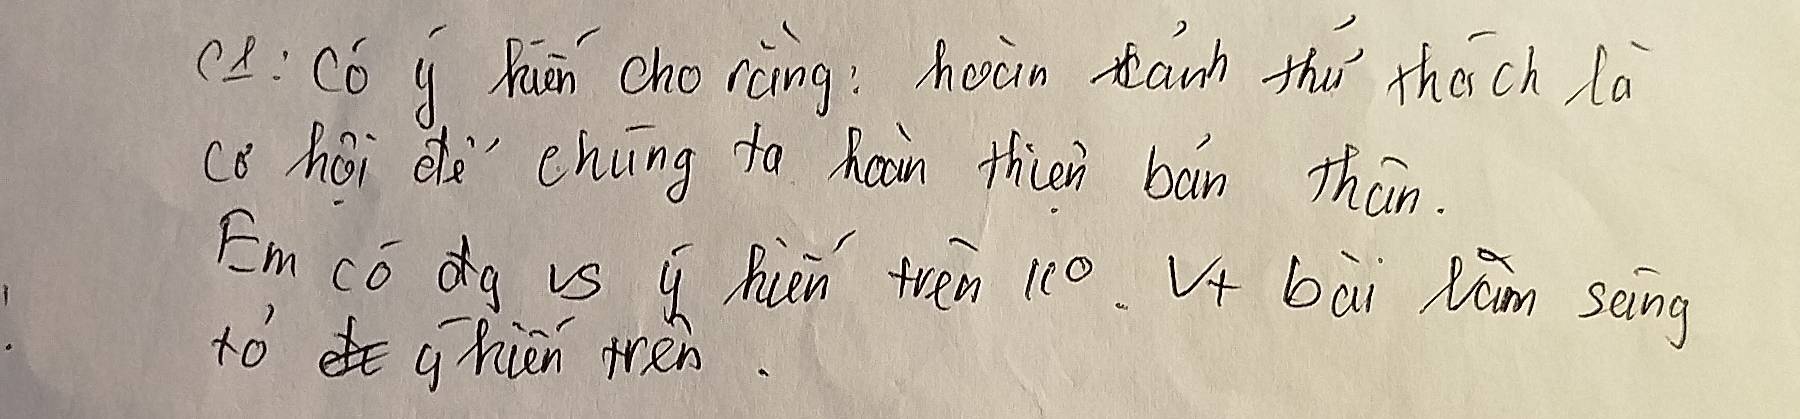 C1: Có ý kiến cho rằng: hoàn cảnh thử thách là
cơ hội để chúng ta hoàn thiện bản thân.
Em có đg vs ý kiến trên ko. Vt bài làm sáng
tỏ ý kiến trên.